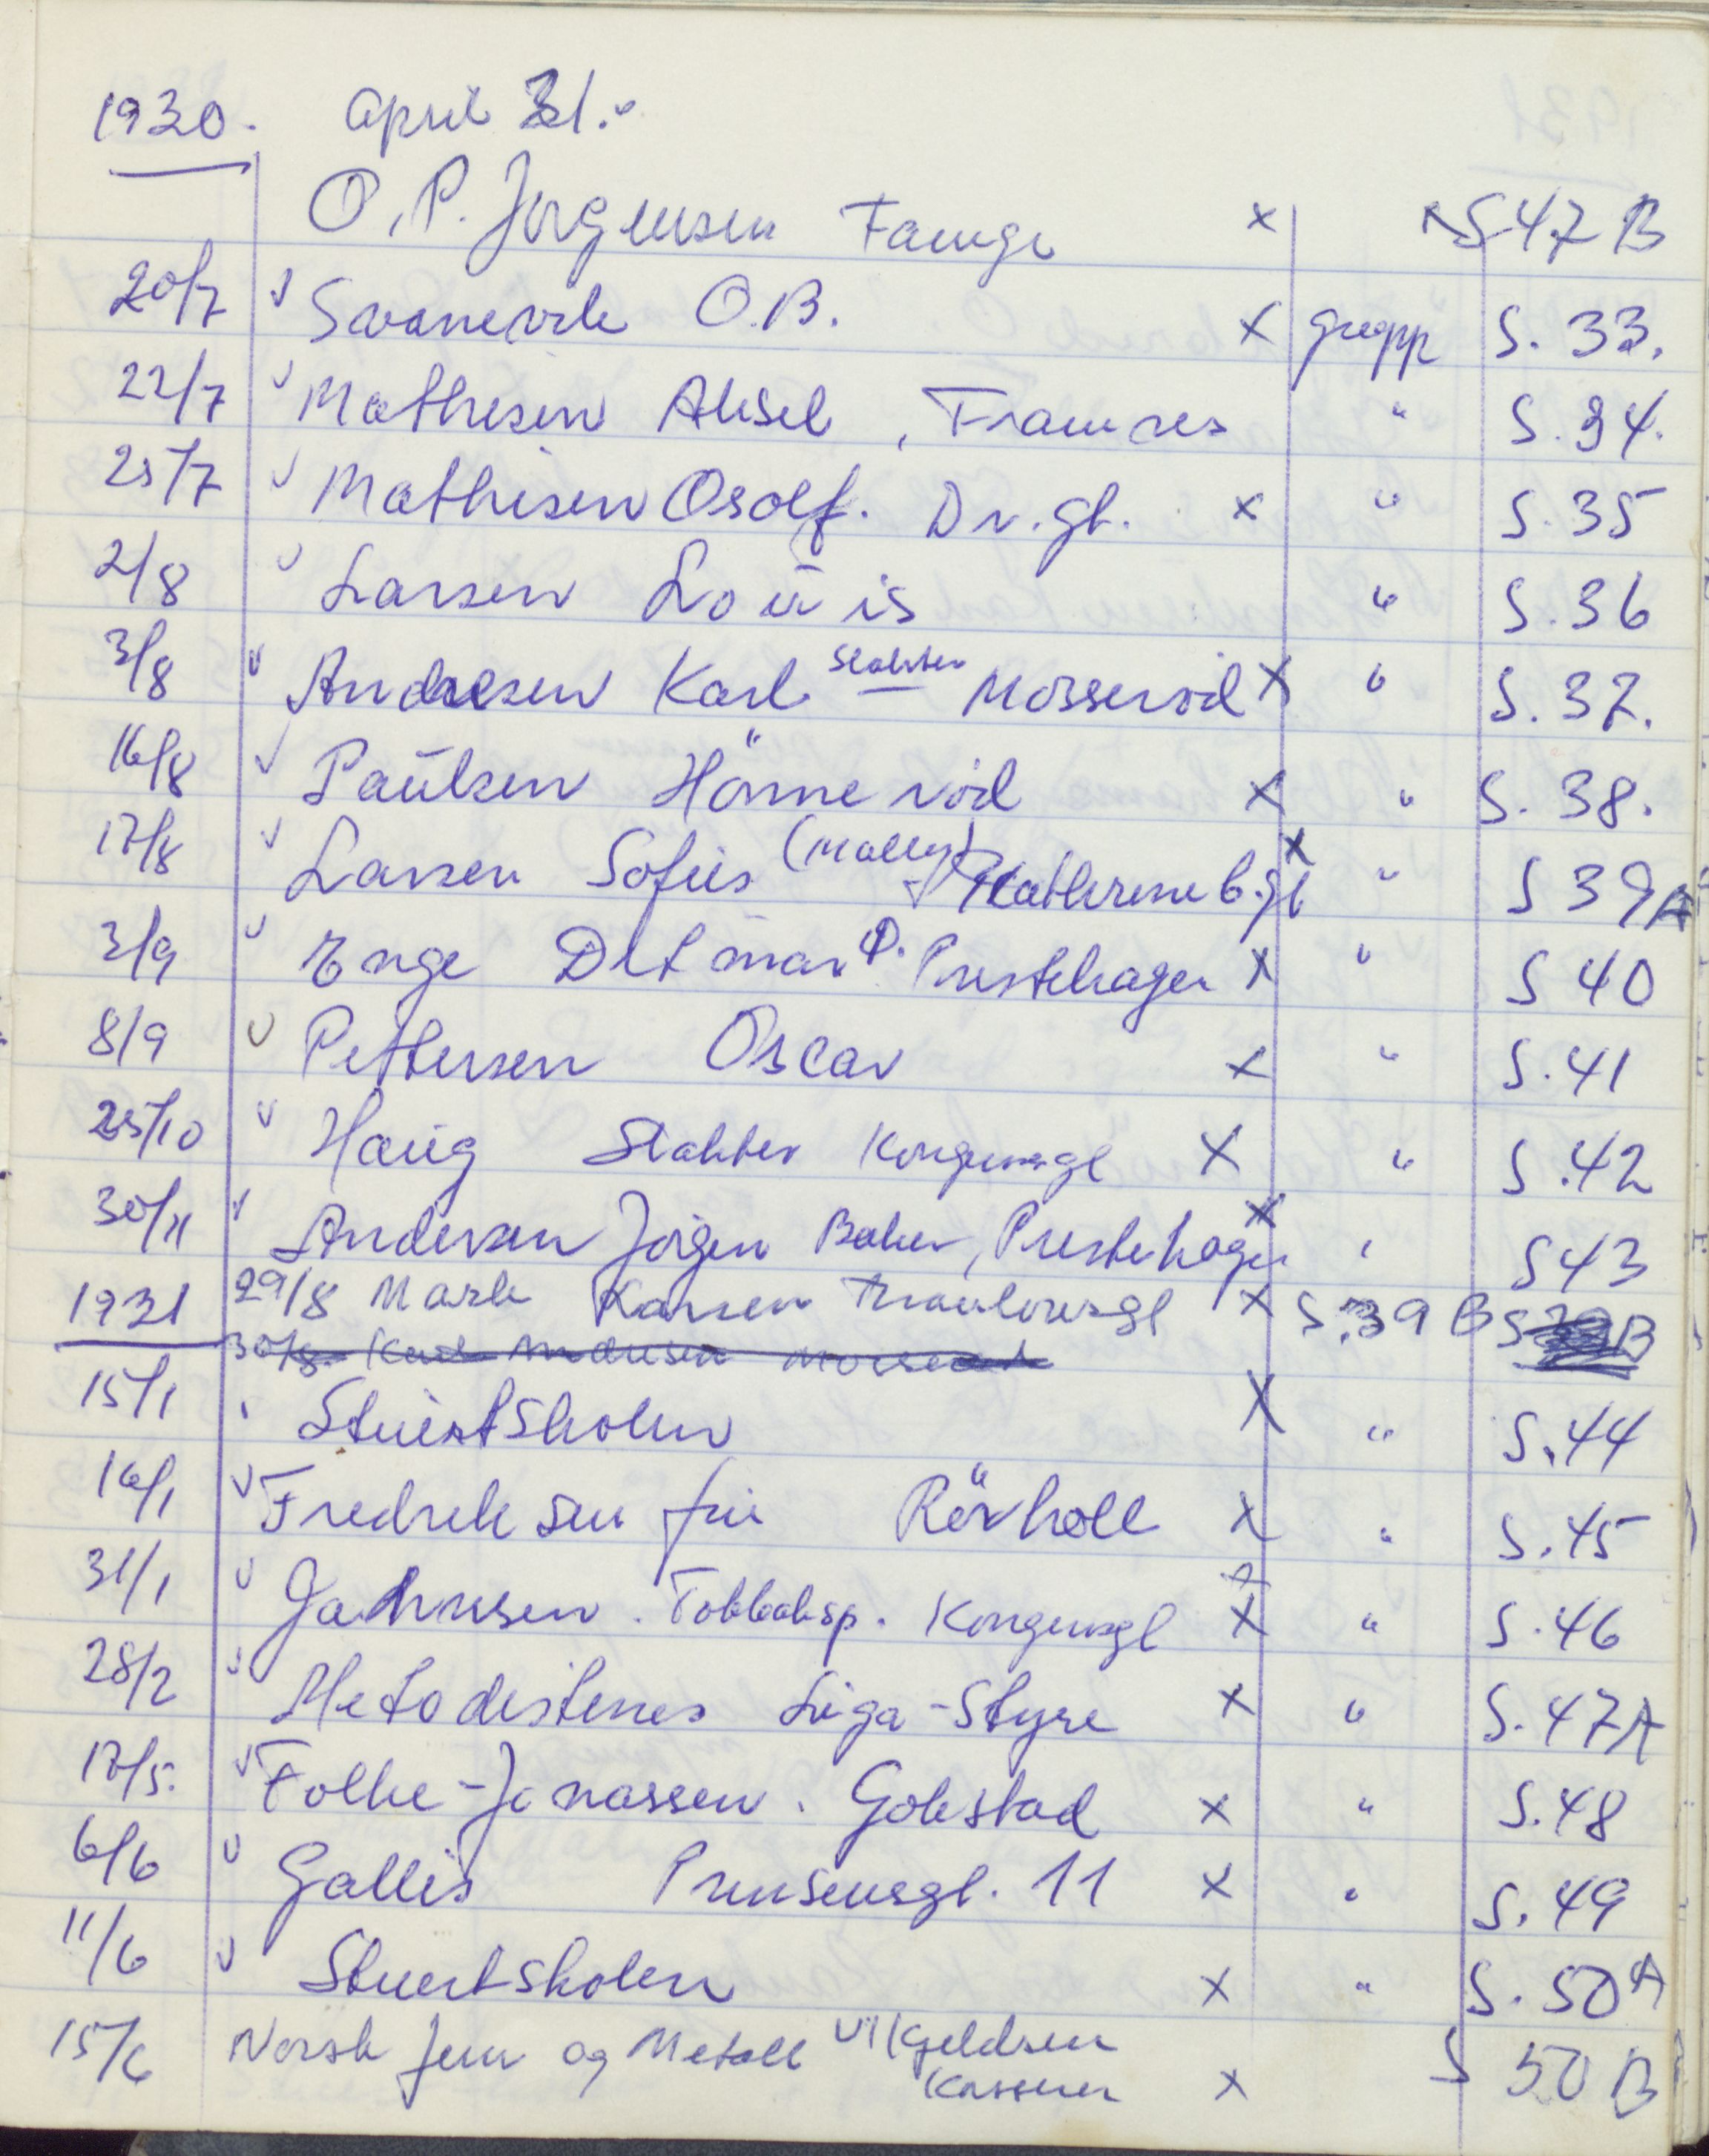 1930. April 31.
O. P. Jørgensen Fange x S 47 B
20/7 v Svanevik O.B. x grupp S. 33.
22/7 v Mathisen Aksel, Framnes " S. 34.
25/7 v Mathisen Osolf. Dr. gt. x " S. 35
2/8 v Larsen Louis " S. 36
3/8 v Andresen Karl Slakter Mosserød x " S. 37.
16/8 v Paulsen Hönnerød x " S. 38.
17/8 v Larsen Sofus (Mally) Kathrineb.gt x " S 39 A
3/9 v Enge Ditmar P. Prestehagen x " S 40
8/9 v Pettersen Oscar x " S. 41
25/10 v Haug Slakter Kongensgt x " S. 42
30/11 v Andersen Jørgen Baker, Prestehagen x " S 43
1931 29/8 Mark Karsen Thaulowsgt x S. 39 B
30/8 Karl Andresen Mosserød
15/1 Stuertskolen x " S. 44
16/1 v Fredriksen fru Rörkoll x " S. 45
31/1 v Jahnsen. Tobbaksp. Kongensgt x " S. 46
28/2 v Metodistenes Liga-Styre x " S. 47A
17/5. v Folke-Jonassen. Gokstad x " S. 48
6/6 v Gallis Prinsensgt. 11 x " S. 49
11/6 v Stuertskolen x " S. 50 A
15/6 Norsk Jern og Metall v/ Kjeldsen x S 50 B
Kasserer